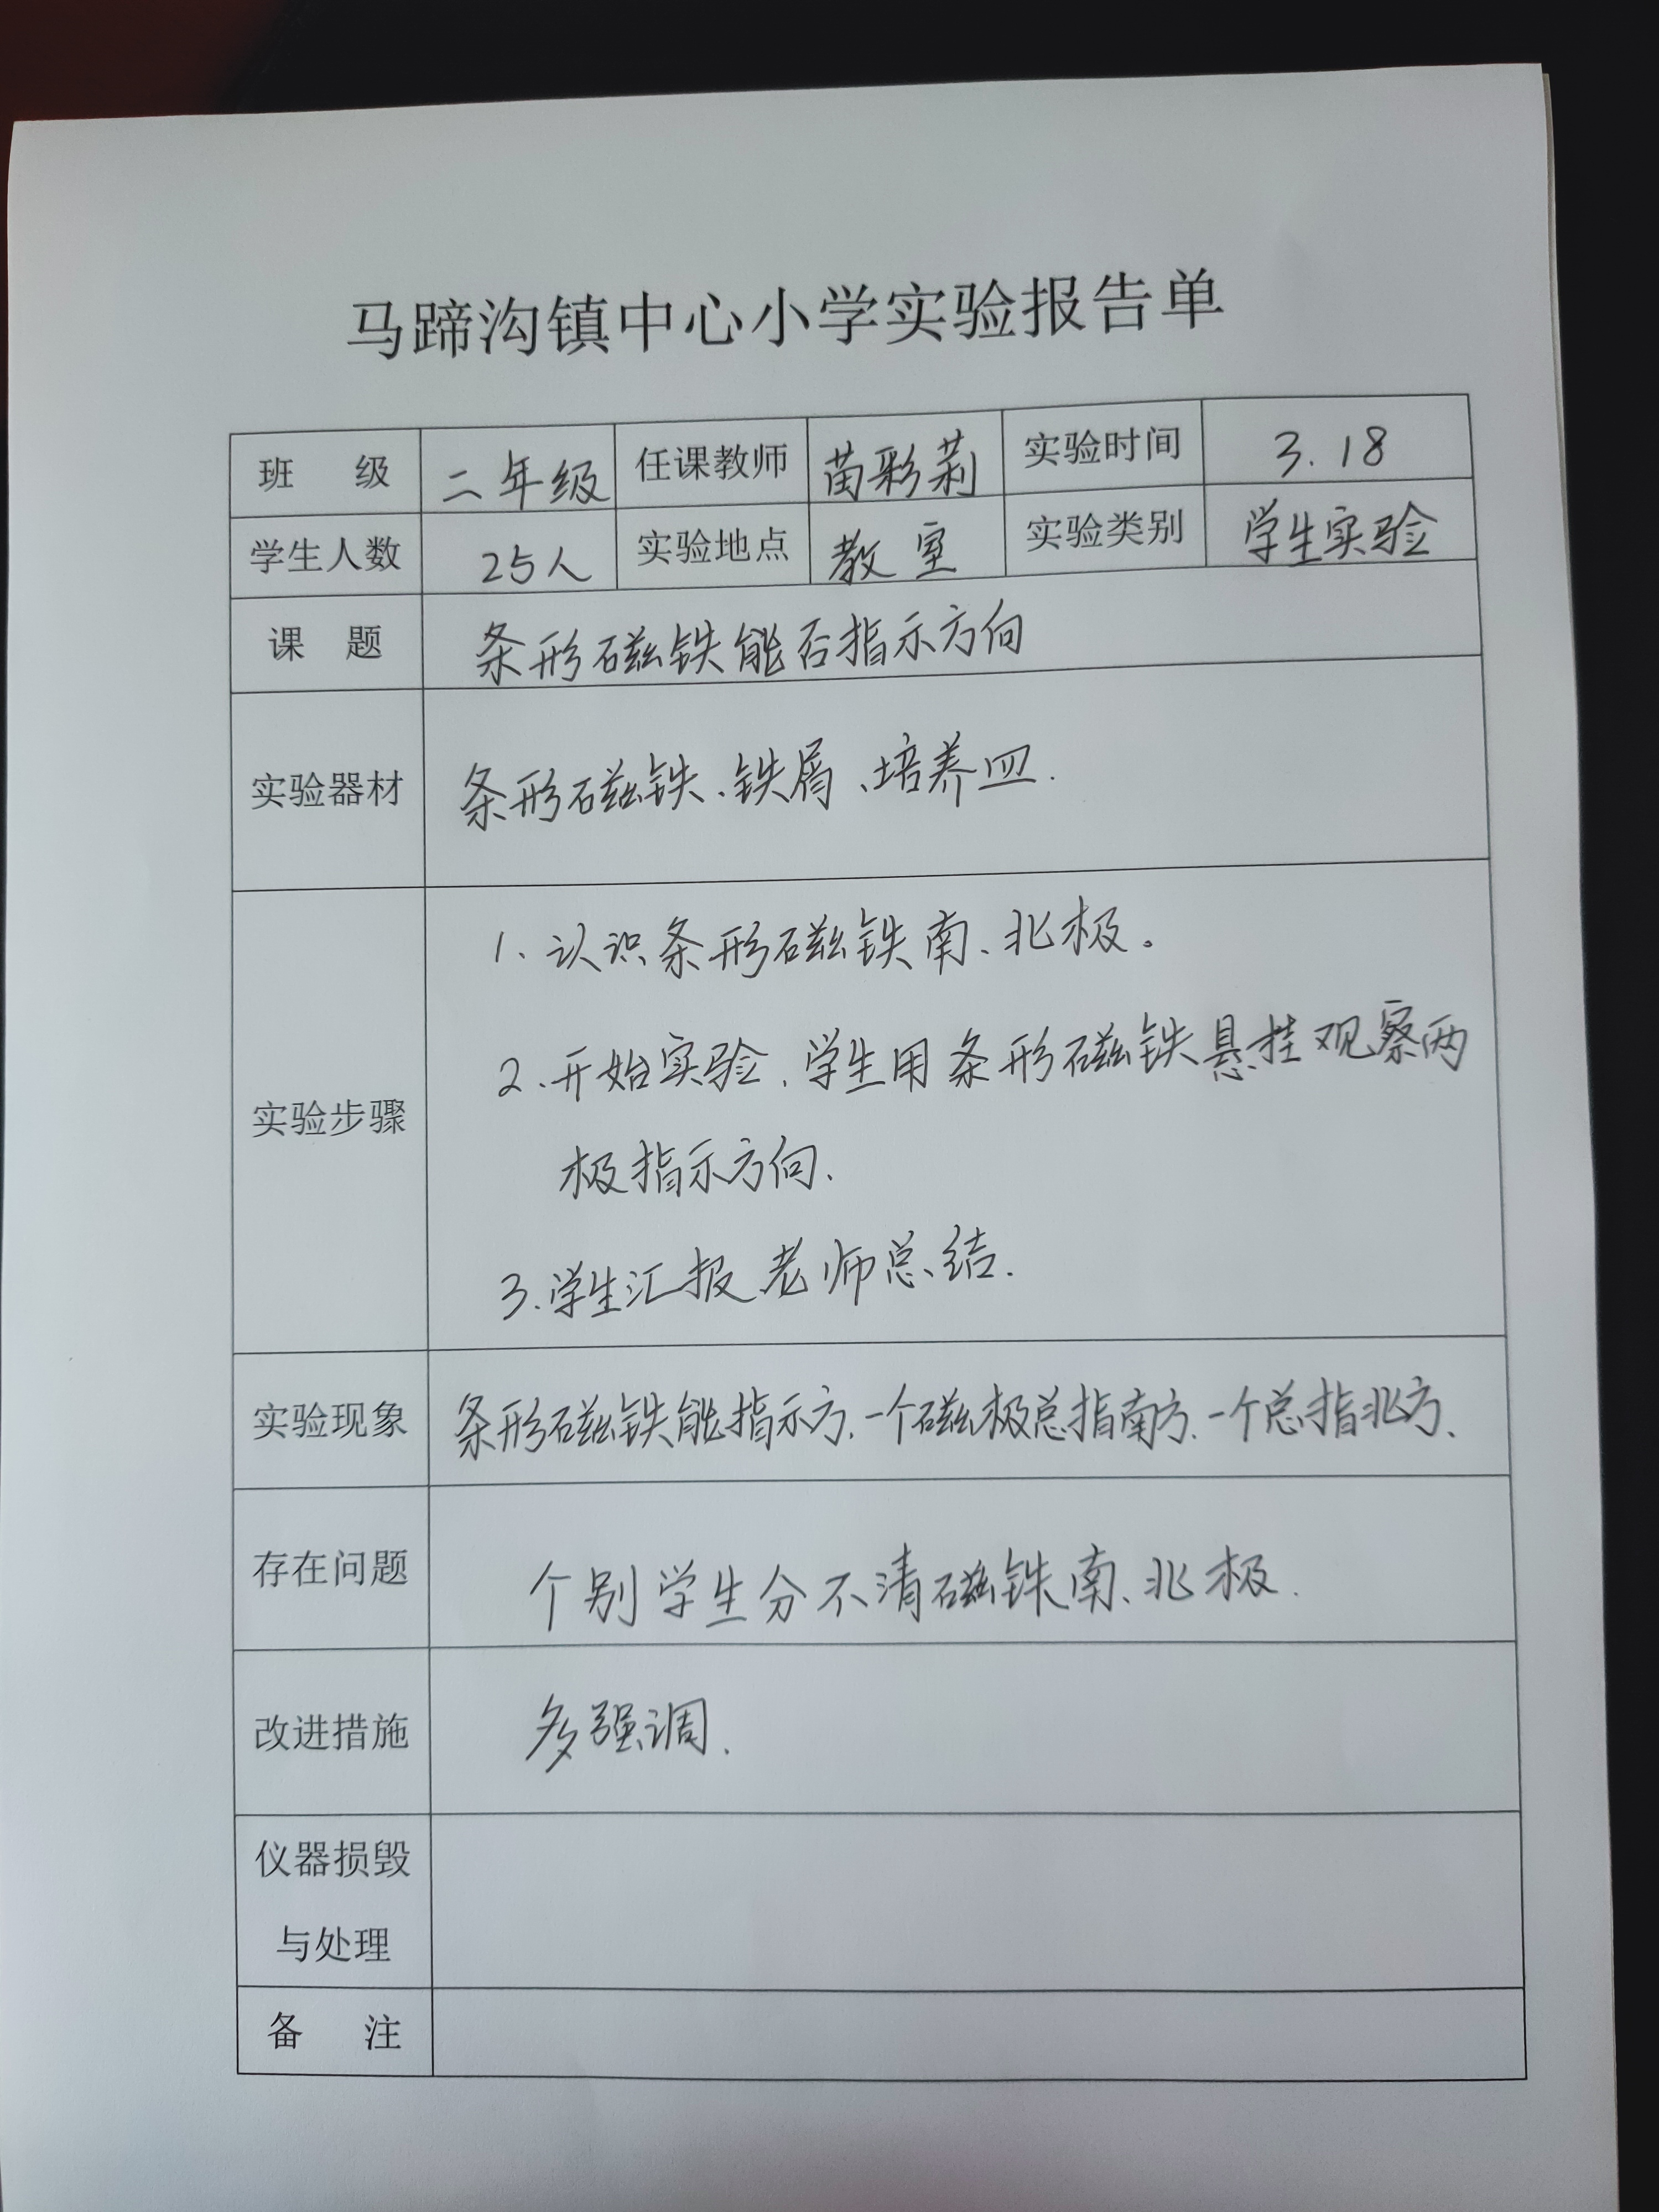 马蹄沟镇中心小学实验报告单
班 级 二年级 任课教师 苗彩莉 实验时间 3.18
学生人数 25人 实验地点 教室 实验类别 学生实验
课 题 条形磁铁能否指示方向
实验器材 条形磁铁、铁屑、培养皿.
1、认识条形磁铁南、北极。
2、开始实验、学生用条形磁铁悬挂观察两
实验步骤
极指示方向.
3.学生汇报、老师总结.
实验现象 条形磁铁能指示方.一个磁极总指南方.一个总指北方、
存在问题 个别学生分不清磁铁南、北极.
改进措施 多强调.
仪器损毁
与处理
备 注